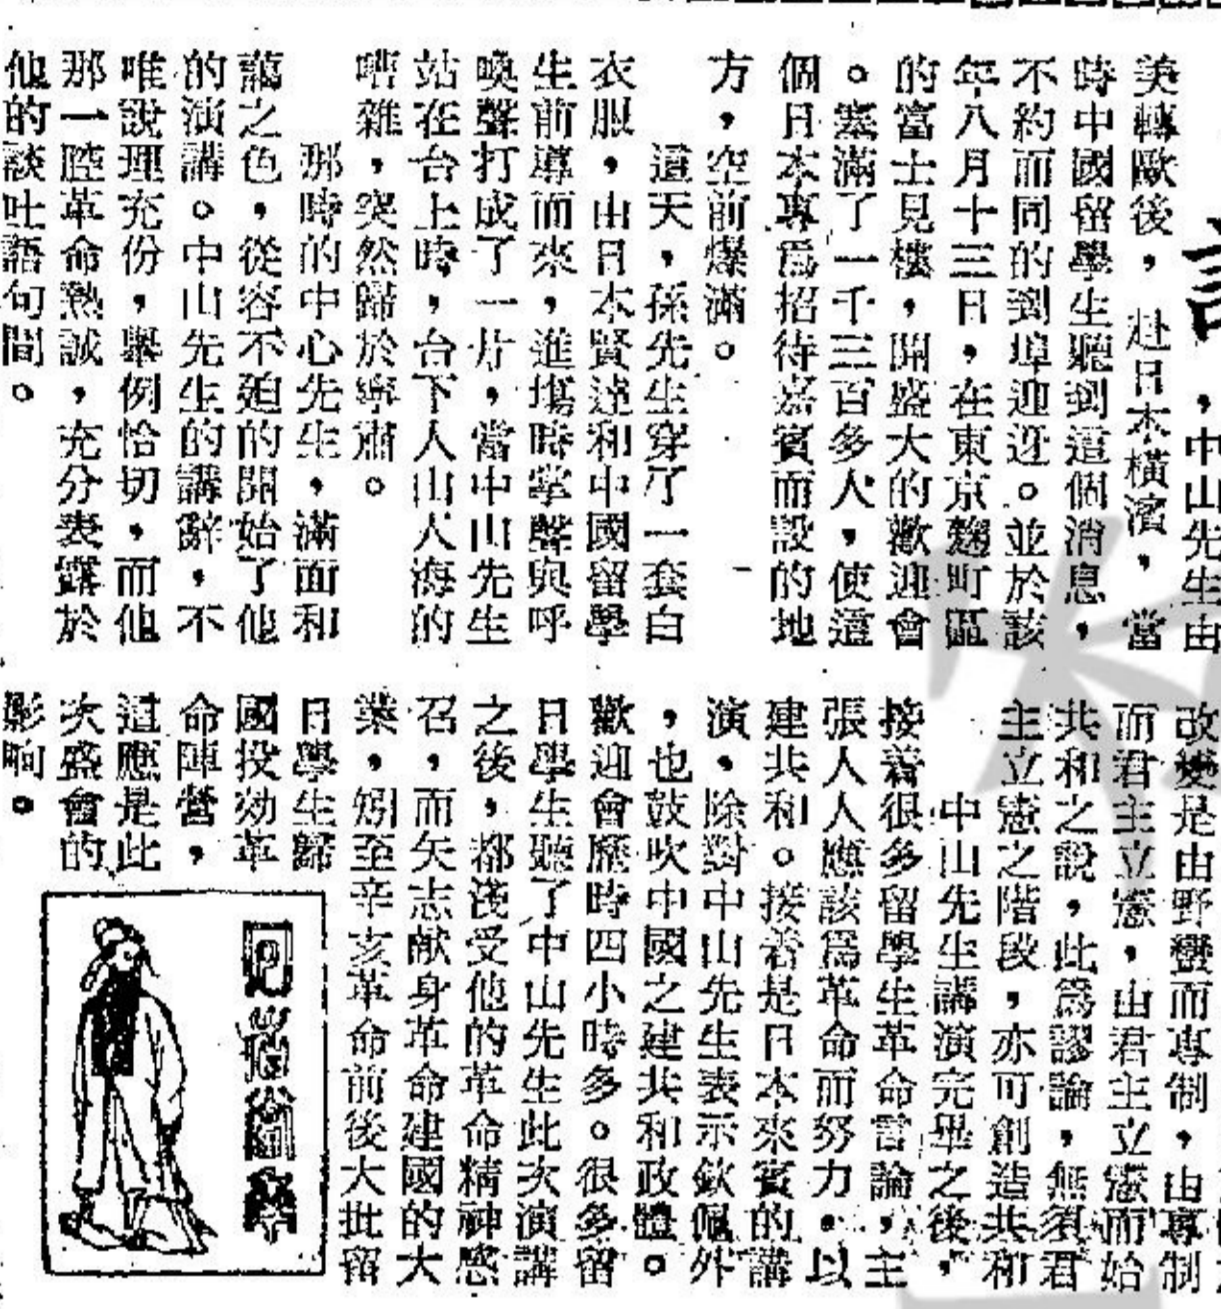 ，中山先生由
美轉歐後，赴日本橫濱，當
時中國留學生聽到這個消息，
不約而同的到埠迎迓。並於該
年八月十三日，在東京麴町區
的富士見樓，開盛大的歡迎會
。塞滿了一千三百多人，使這
個日本專為招待嘉賓而設的地
方，空前爆滿。
這天，孫先生穿了一套白
衣服，由日本賢達和中國留學
生前導而來，進場時掌聲與呼
喚聲打成了一片，當中山先生
站在台上時，台下人山人海的
嘈雜，突然歸於寧肅。
那時的中心先生，滿面和
藹之色，從容不迫的開始了他
的演講。中山先生的講辭，不
唯說理充份，舉例恰切，而他
那一腔革命熱誠，充分表露於
他的談吐語句間。
改變是由野蠻而專制，由專制
而君主立憲，由君主立憲而始
共和之說，此為謬論，無須君
主立憲之階段，亦可創造共和
中山先生講演完畢之後，
接着很多留學生革命言論，主
張人人應該為革命而努力，以
建共和。接着是日本來賓的講
演，除對中山先生表示欽佩外
，也鼓吹中國之建共和政體。
歡迎會歷時四小時多。很多留
日學生聽了中山先生此次演講
之後，都深受他的革命精神感
召，而矢志献身革命建國的大
業，矧至辛亥革命前後大批留
日學生歸
國投効革
命陣營，
這應是此
次盛會的
影响。